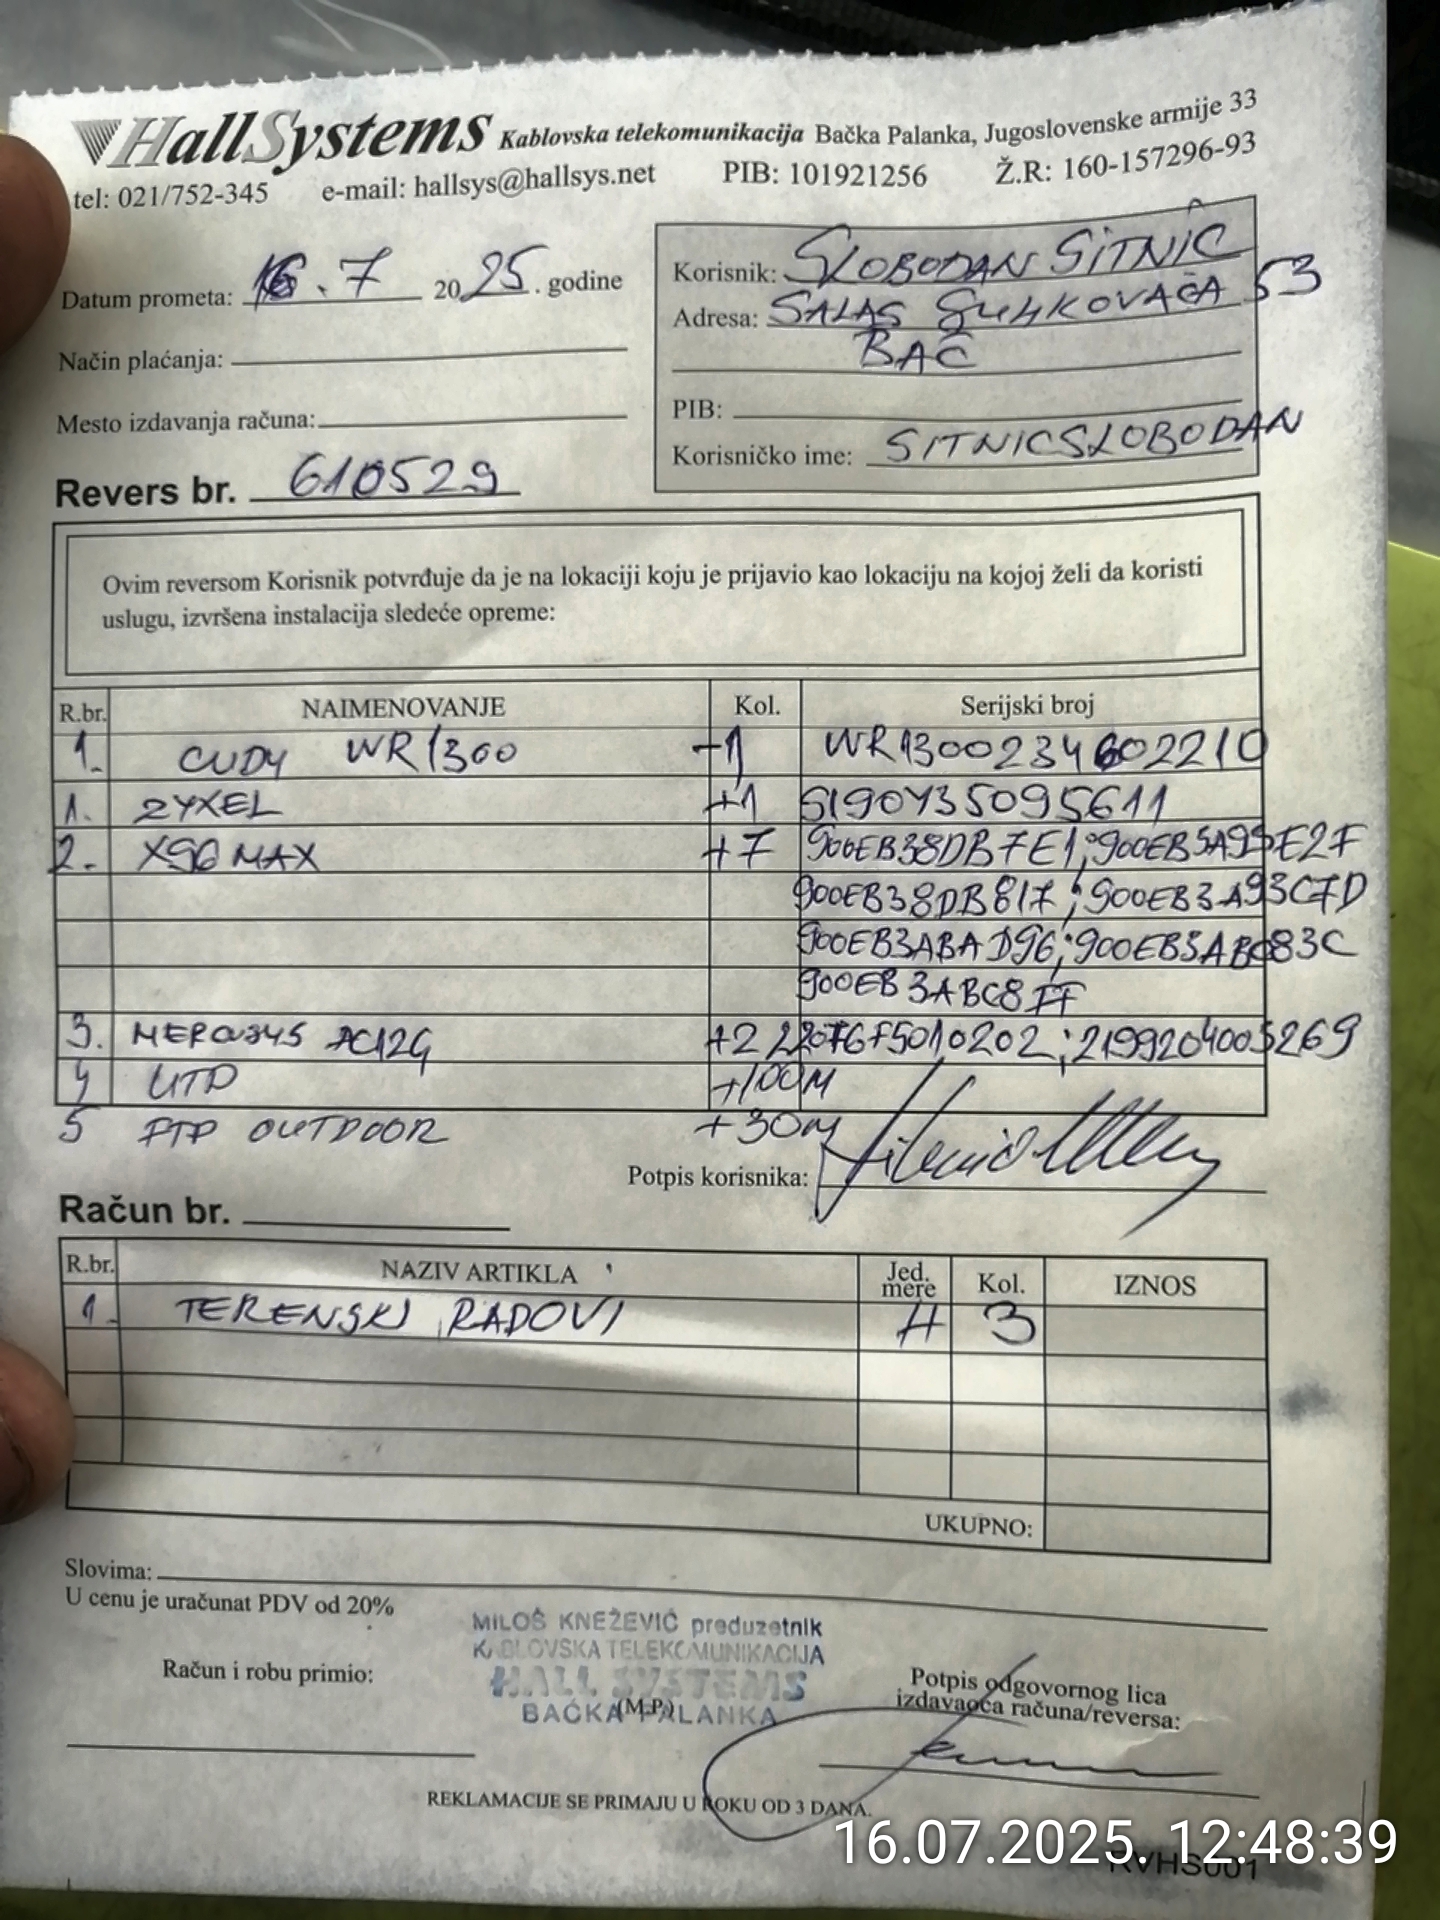 HallSystems Kablovska telekomunikacija Bačka Palanka, Jugoslovenske armije 33
tel: 021/752-345 e-mail: hallsys@hallsys.net PIB: 101921256 Ž.R: 160-157296-93
Datum prometa: 16.7 2025. godine
Korisnik: SLOBODAN SITNIĆ
Adresa: SALAŠ 53
BAČ
Način plaćanja:
Mesto izdavanja računa:
PIB:
Korisničko ime: SITNICSLOBODAN
Revers br. 610529
Ovim reversom Korisnik potvrđuje da je na lokaciji koju je prijavio kao lokaciju na kojoj želi da koristi
uslugu, izvršena instalacija sledeće opreme:
R.br. NAIMENOVANJE Kol. Serijski broj
1. CUDY WR1300 -1 WR1300234602210
1. ZYXEL +1 S190Y35095611
2. X96 MAX +7 900EB38DB7E1;900EB3A95E2F
900EB38DB817;900EB3A93C7D
900EB3ABAD96;900EB3ABC83C
900EB3ABC8FF
3. MERCUSYS AC12G +2 22076F5010202;2199204005269
4 UTP +100M
5 FTP OUTDOOR +30M
Potpis korisnika:
Račun br.
R.br. NAZIV ARTIKLA Jed. mere Kol. IZNOS
1. TERENSKI RADOVI H 3
UKUPNO:
Slovima:
U cenu je uračunat PDV od 20%
MILOŠ KNEŽEVIĆ preduzetnik
KABLOVSKA TELEKOMUNIKACIJA
HALL SYSTEMS
BAČKA PALANKA
(M.P.)
Račun i robu primio:
Potpis odgovornog lica
izdavaoca računa/reversa:
REKLAMACIJE SE PRIMAJU U ROKU OD 3 DANA.
16.07.2025. 12:48:39
RVHS001